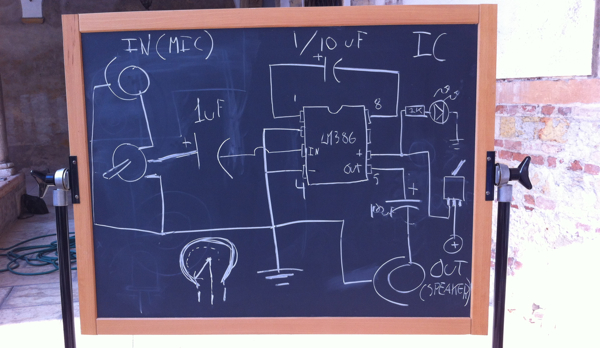 IN (MIC)
1/10 uF
IC
+
1uF
+
1
8
1K
LM386
IN
+
-
OUT
4
5
+
-
+
OUT
(SPEAKER)